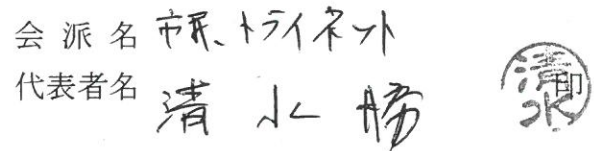 会派名 市民、トライネット
代表者名 清水勝 印
清水